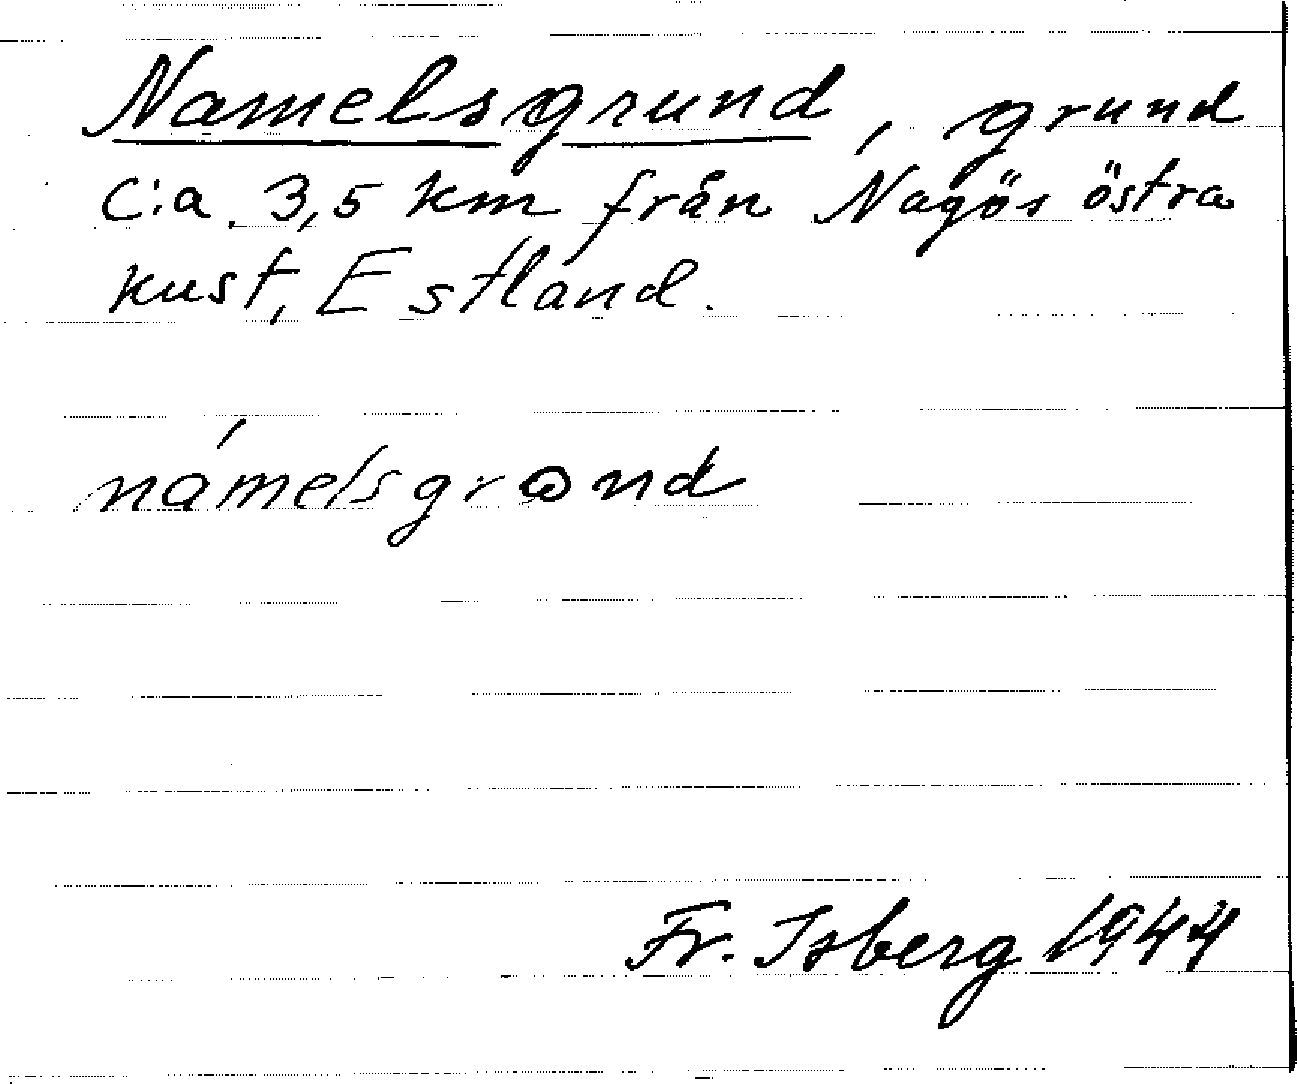 Namelsgrund, grund
C:a 3,5 km från Nagös östra
kust, Estland.
námelsgrωnd
Fr. Isberg 1944